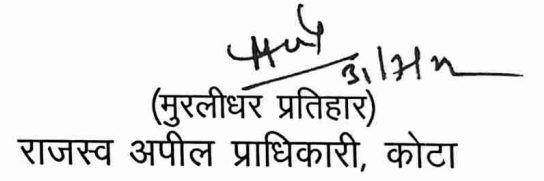 (मुरलीधर प्रतिहार)
राजस्व अपील प्राधिकारी, कोटा